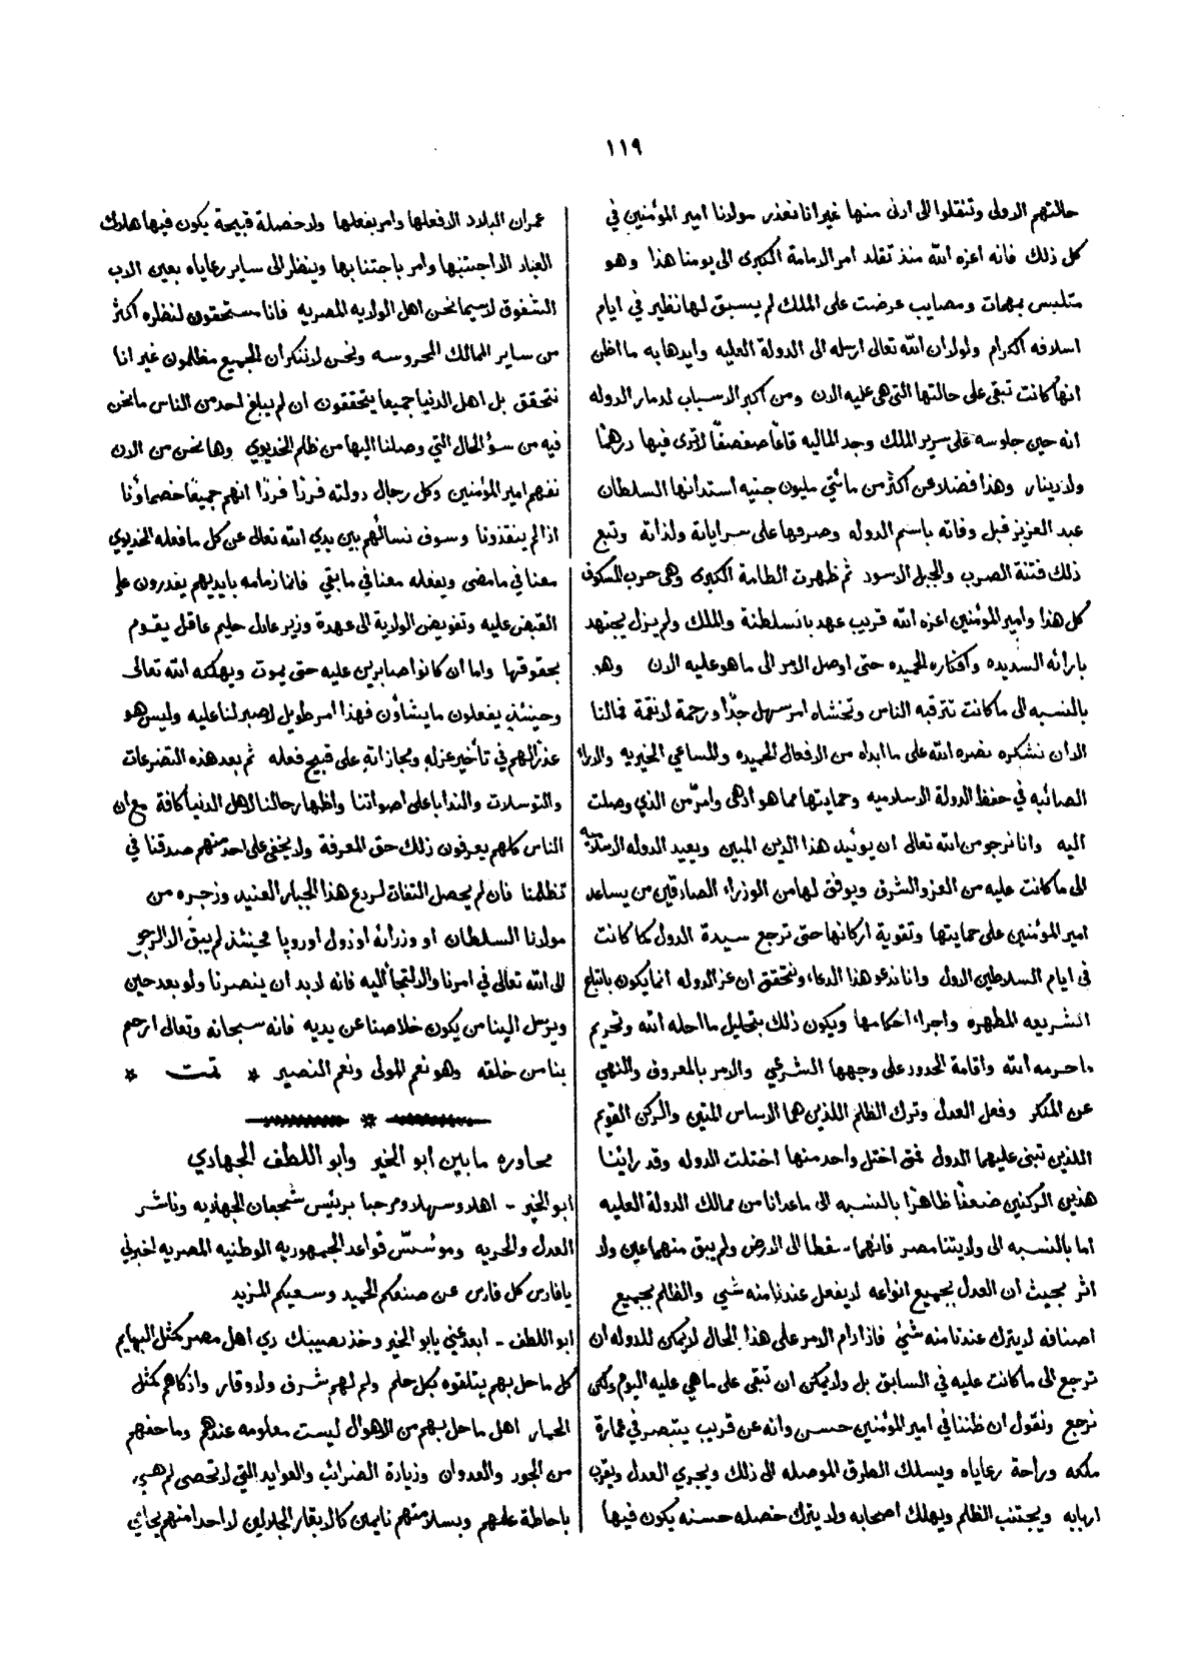 ١١٩
حالتهم الاولى وتنقلوا الى ادنى منها غير انا نعذر مولانا امير المؤمنين في
كل ذلك فانه اعزه الله منذ تقلد امر الامامة الكبرى الى يومنا هذا وهو
متلبس بمهمات ومصايب عرضت على الملك لم يسبق لها نظير في ايام
اسلافه الكرام ولولا ان الله تعالى ارسله الى الدولة العليه وايدها به ما اظن
انها كانت تبقى على حالتها التي هي عليه الان ومن اكبر الاسباب لدمار الدوله
انه حين جلوسه على سرير الملك وجد الماليه قاعًا صفصفًا لا ترى فيها درهمًا
ولا دينار وهذا فضلا عن اكثر من مائتي مليون جنيه استدانها السلطان
عبد العزيز قبل وفاته باسم الدوله وصرفها على سراياته ولذاته وتبع
ذلك فتنة الصرب والجبل الاسود ثم ظهرت الطامة الكبرى وهي حرب المسكوف
كل هذا وامير المؤمنين اعزه الله قريب عهد بالسلطنة والملك ولم يزل يجتهد
بارائه السديده وافكاره الحميده حتى اوصل الامر الى ما هو عليه الان وهو
بالنسبه الى ما كانت تترقبه الناس وتخشاه امر سهل جدًّا ورحمة لا نقمة فمالنا
الا ان نشكره نصره الله على ما ابداه من الافعال الحميده والمساعي الخيريه والارا
الصائبه في حفظ الدولة الاسلاميه وحمايتها مما هو ادهى وامرّ من الذي وصلت
اليه وانا نرجو من الله تعالى ان يوئيد هذا الدين المبين ويعيد الدوله الاسلاميه
الى ما كانت عليه من العز والشرف ويوفق لها من الوزراء الصادقين من يساعد
امير المؤمنين على حمايتها وتقوية اركانها حتى ترجع سيدة الدول كما كانت
في ايام السلاطين الاول وانا ندعو هذا الدعاء ونتحقق ان عز الدوله انما يكون باتباع
الشريعه المطهره واجراء احكامها ويكون ذلك بتحليل ما احله الله وتحريم
ما حرمه الله واقامة الحدود على وجهها الشرعي والامر بالمعروف والنهي
عن المنكر وفعل العدل وترك الظلم اللذين هما الاساس المتين والركن القويم
اللذين تبنى عليهما الدول فمتى اختل واحد منها اختلت الدوله وقد راينا
هذين الركنين ضعفا ظاهرًا بالنسبه الى ما عدانا من ممالك الدولة العليه
اما بالنسبه الى ولايتنا مصر فانهما سقطا الى الارض ولم يبق منهما عين ولا
اثر بحيث ان العدل بجميع انواعه لا يفعل عندنا منه شي والظلم بجميع
اصنافه لا يترك عندنا منه شيً فاذا دام الامر على هذا الحال لا يمكن للدوله ان
ترجع الى ما كانت عليه في السابق بل ولا يمكن ان تبقى على ما هي عليه اليوم ولكن
نرجع ونقول ان ظننا في امير المؤمنين حسن وانه عن قريب يتبصر في عمارة
ملكه وراحة رعاياه ويسلك الطرق الموصله الى ذلك ويجري العدل ويقرب
اربابه ويجتنب الظلم ويهلك اصحابه ولا يترك خصله حسنه يكون فيها
عمران البلاد الا فعلها وامر بفعلها ولا خصلة قبيحة يكون فيها هلاك
العباد الا اجتنبها وامر باجتنابها وينظر الى ساير رعاياه بعين الاب
الشفوق لا سيما نحن اهل الولايه المصريه فانا مستحقون لنظره اكثر
من ساير الممالك المحروسه ونحن لا ننكر ان الجميع مظلمون غير انا
نتحقق بل اهل الدنيا جميعا يتحققون ان لم يبلغ لحد من الناس ما نحن
فيه من سؤ الحال التي وصلنا اليها من ظلم الخديوي وها نحن من الان
نفهم امير المؤمنين وكل رجال دولته فردًا فردًا انهم جميعًا خصماؤنا
اذا لم ينقذونا وسوف نسائلهم بين يدي الله تعالى عن كل ما فعله الخديوي
معنا في ما مضى ويفعله معنا في ما بقي فانما زمامه بايديهم يقدرون على
القبض عليه وتفويض الولاية الى عهدة وزير عادل حليم عاقل يقوم
بحقوقها واما ان كانوا صابرين عليه حتى يموت ويهلكه الله تعالى
وحينئذٍ يفعلون ما يشاؤن فهذا امر طويل لا صبر لنا عليه وليس هو
عذرًا لهم في تأخير عزله ومجازاته على قبيح فعله ثم بعد هذه التضرعات
والتوسلات والندا باعلى اصواتنا واظهار حالنا لاهل الدنيا كافة مع ان
الناس كلهم يعرفون ذلك حق المعرفة ولا يخفى على احد منهم صدقنا في
تظلمنا فان لم يحصل التفات لردع هذا الجبار العنيد وزجره من
مولانا السلطان او وزرائه او دول اوروپا فحينئذ لم يبق الا الرجوع
الى الله تعالى في امرنا والالتجا اليه فانه لا بد ان ينصرنا ولو بعد حين
ويرسل الينا من يكون خلاصنا عن يديه فانه سبحانه وتعالى ارحم
بنا من خلقه وهو نعم المولى ونعم النصير * تمت *
محاوره ما بين ابو الخير وابو اللطف الجهادي
ابو الخير - اهلا وسهلا ومرحبا برئيس شجعان الجهاديه وناشر
العدل والحريه وموسّس قواعد الجمهوريه الوطنيه المصريه اخبرني
يا فارس كل فارس عن صنعكم الحميد وسعيكم المزيد
ابو اللطف - ابعد عني يابو الخير وخذ نصيبك دي اهل مصر كمثل البهايم
كل ما حل بهم يتلقوه بكل حلم ولم لهم شرف ولا وقار واذكاهم كمثل
الحمار اهل ما حل بهم من الاهوال ليست معلومه عندهم وما حفهم
من الجور والعدوان وزيادة الضرائب والعوايد التي لا تحصى لم هي
باحاطة علمهم وبسلامتهم نايمين كالابقار الجلدين لا احدا منهم يحاشي